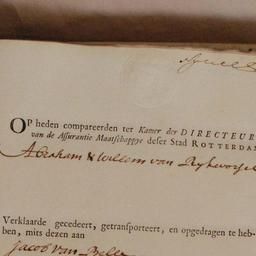 OP heden compareerden ter Kamer der DIRECTEUR
van de Assurantie Maatschappye deser Stad ROTTERDAM
Abraham & Willem van Ryckevorsel
Verklaarde gecedeert, getransporteert, en opgedragen te heb-
ben, mits dezen aan
Jacob van Belle